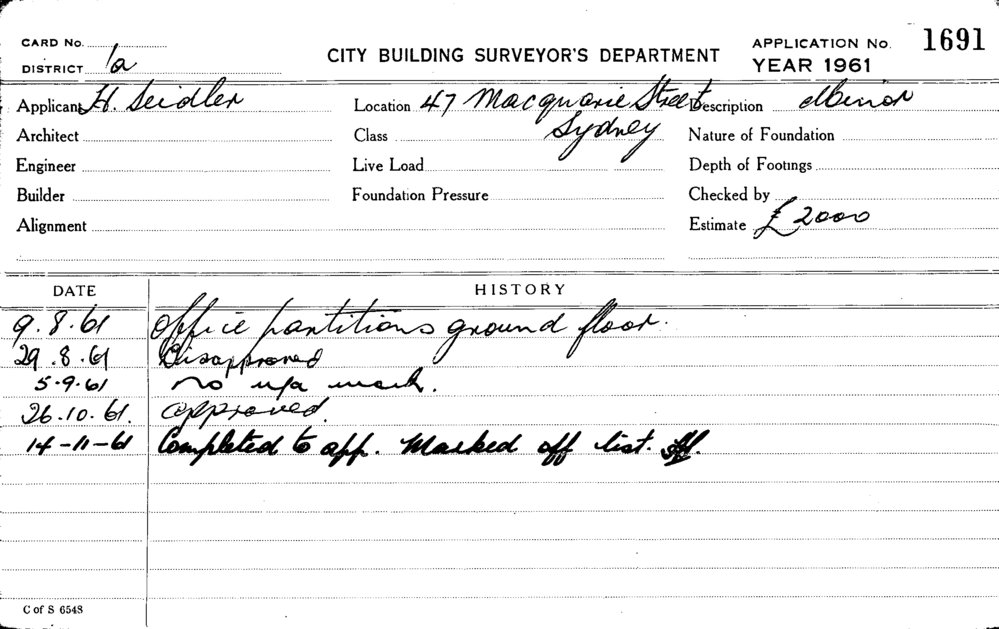 CARD No.
DISTRICT 1a
CITY BUILDING SURVEYOR'S DEPARTMENT
APPLICATION No. 1691
YEAR 1961
Applicant H. Seidler
Location 47 Macquarie Street Sydney
Description Minor
Architect
Class
Nature of Foundation
Engineer
Live Load
Depth of Footings
Builder
Foundation Pressure
Checked by
Alignment
Estimate £2000
DATE HISTORY
9.8.61 Office partitions ground floor.
29.8.61 Disapproved
5.9.61 no u/a work.
26.10.61. approved.
14-11-61 Completed to app. Marked off list.
C of S 6548